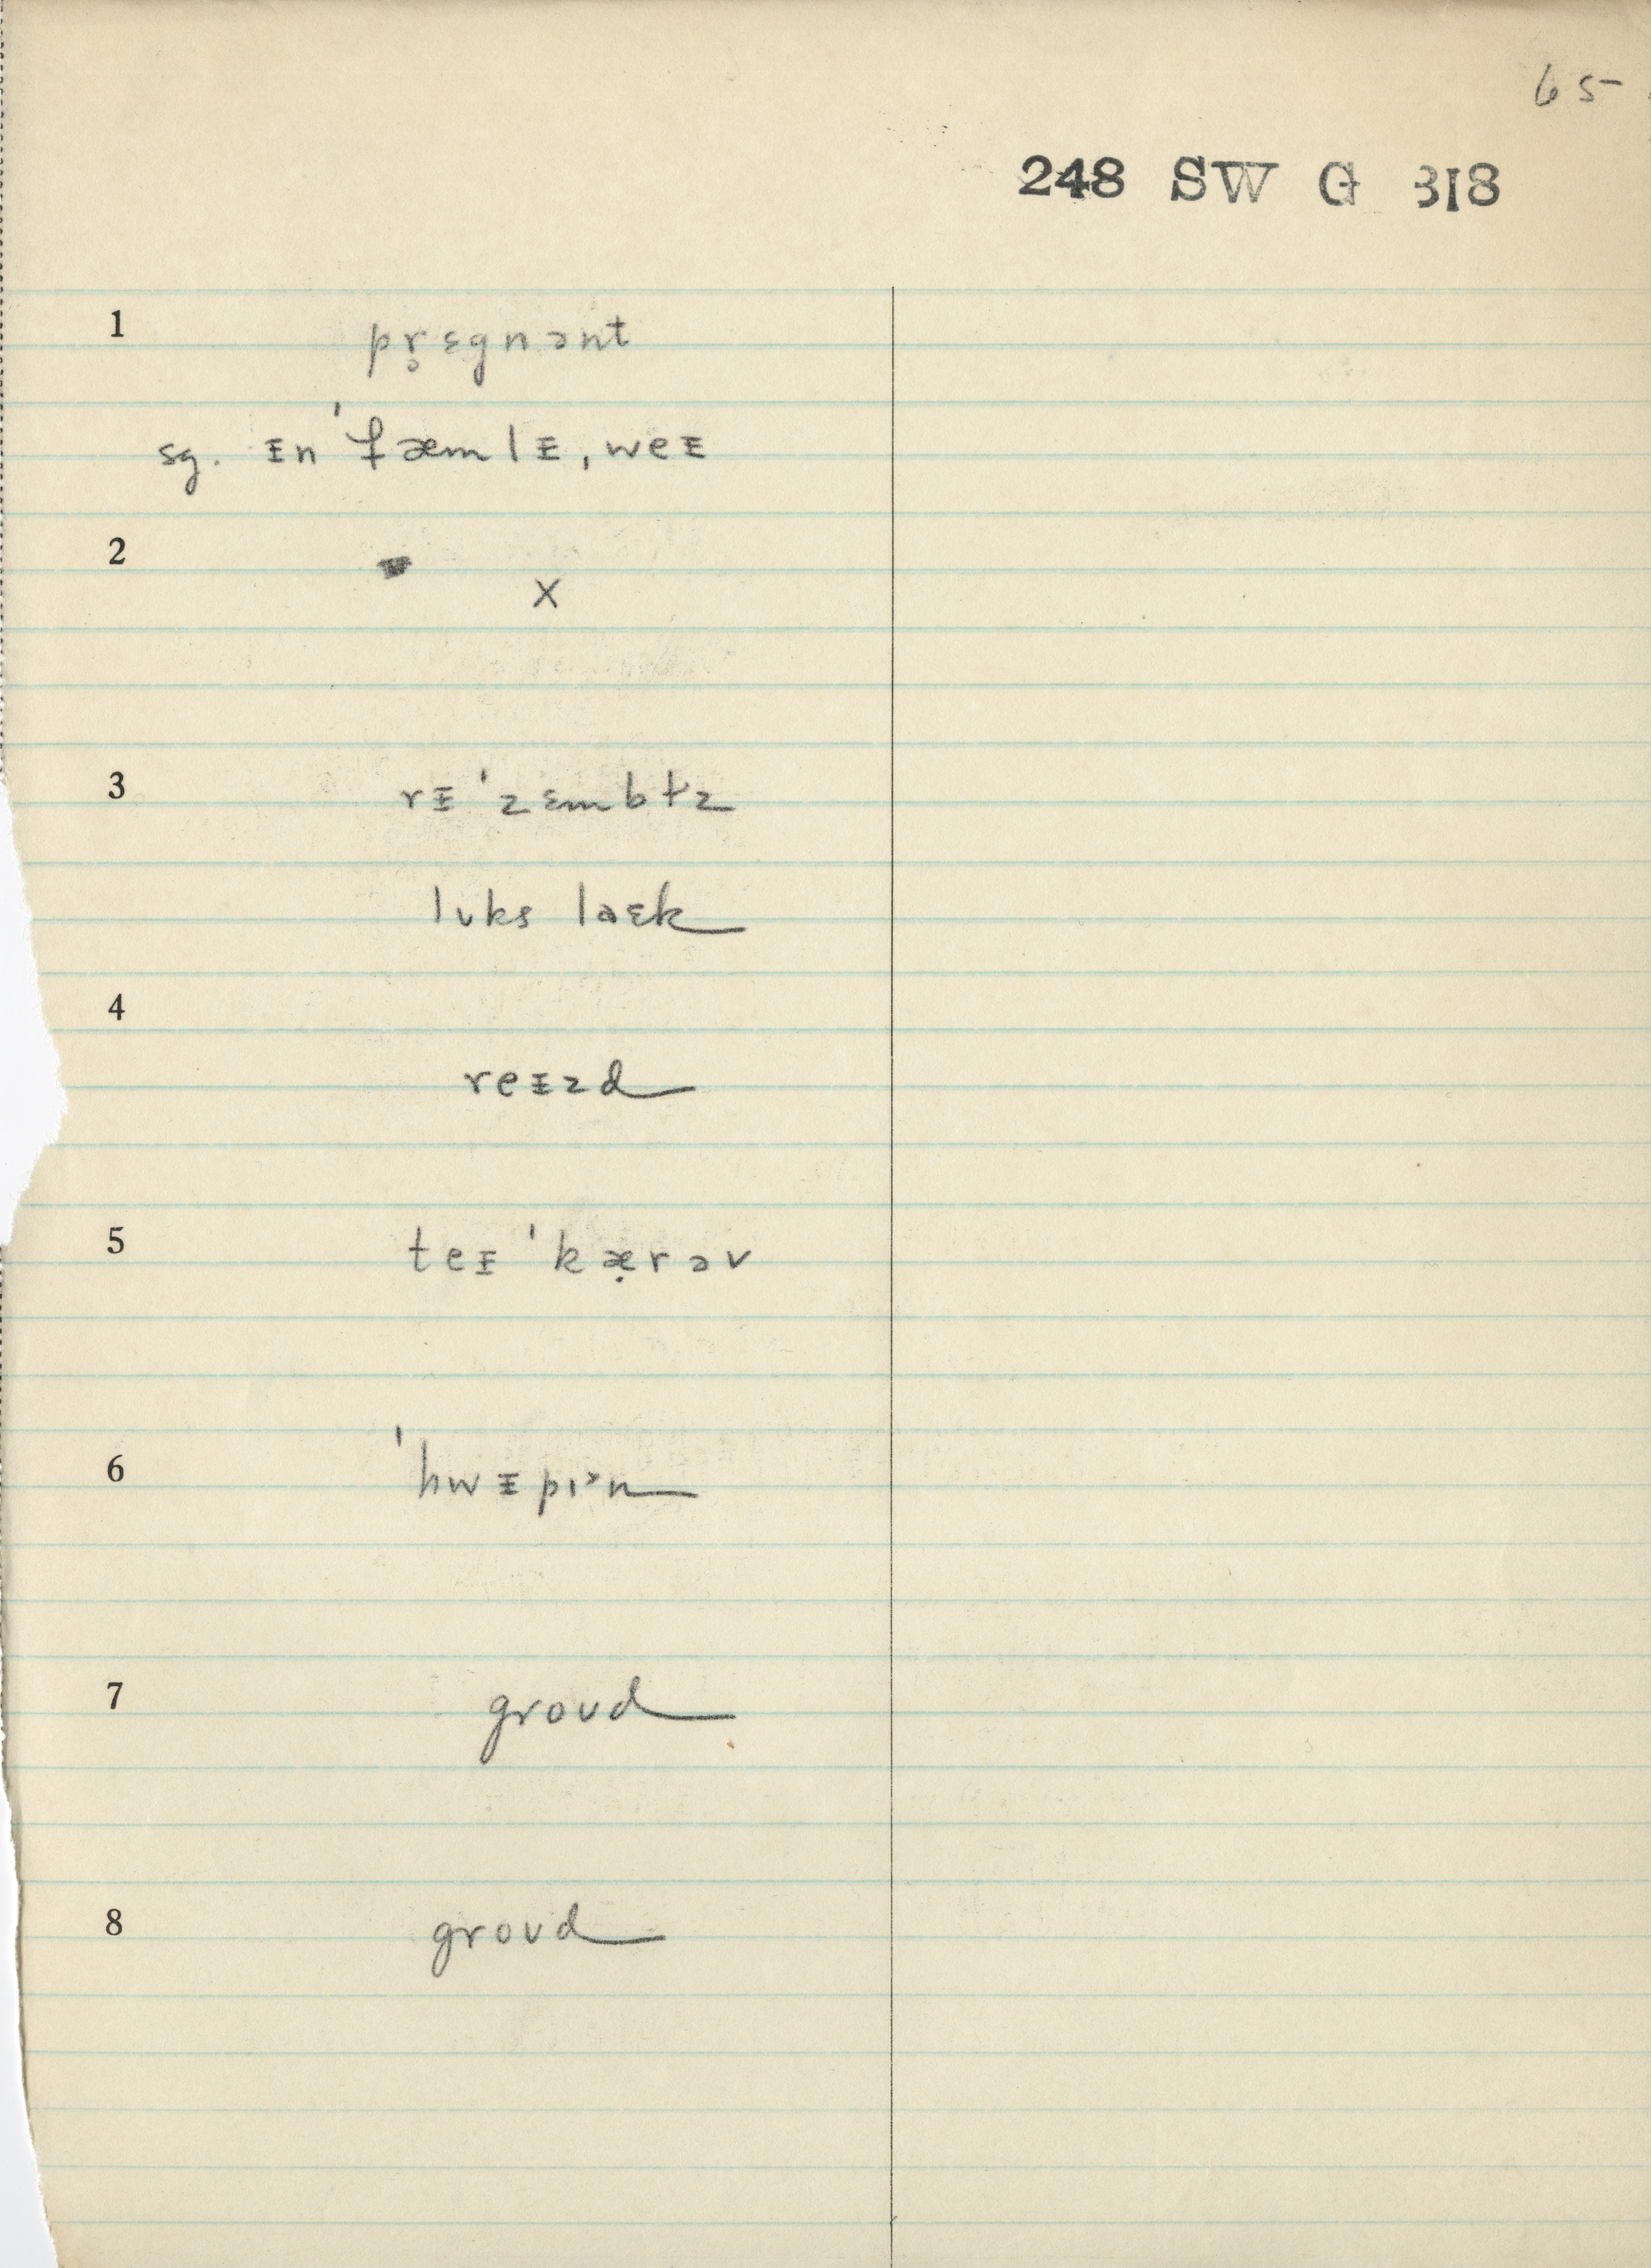 65
248 SW G 318
1 pr̥ɛgnənt
sg. ᵻn 'fæmlᵻ, weᵻ
2 X
3 rᵻ'zɛmbɫz
lʊks laɛk
4 reᵻzd
5 teᵻ 'kæ̣rəv
6 'hwᵻpɪ˃n
7 groʊd
8 groʊd